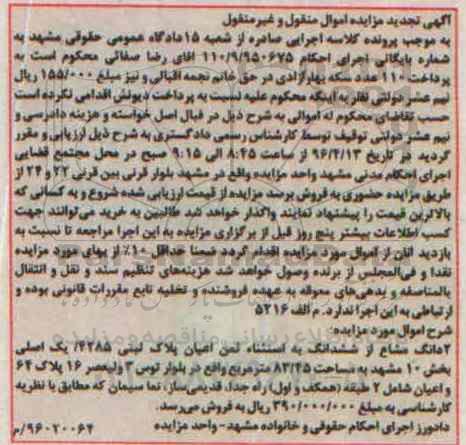 آگهی تجدید مزایده اموال منقول و غیرمنقول
به موجب پرونده کلاسه اجرایی صادره از شعبه ۱۵دادگاه عمومی حقوقی مشهد به
شماره بایگانی اجرای احکام ۱۱۰/۹/۹۵۰۶۷۵ اقای رضا صفائی محکوم است به
پرداخت ۱۱۰ عدد سکه بهارآزادی در حق خانم نجمه اقبالی و نیز مبلغ ۱۵۵/۰۰۰ ریال
نیم عشر دولتی نظر به اینکه محکوم علیه نسبت به پرداخت دیونش اقدامی نکرده است
حسب تقاضای محکوم له اموالی به شرح ذیل در قبال اصل خواسته و هزینه دادرسی و
نیم عشر دولتی توقیف توسط کارشناس رسمی دادگستری به شرح ذیل ارزیابی و مقرر
گردید در تاریخ ۹۶/۴/۱۳ از ساعت ۸:۴۵ الی ۹:۱۵ صبح در محل مجتمع قضایی
اجرای احکام مدنی مشهد واحد مزایده واقع در مشهد بلوار قرنی بین قرنی ۲۲ و ۲۴ از
طریق مزایده حضوری به فروش برسد مزایده از قیمت ارزیابی شده شروع و به کسانی که
بالاترین قیمت را پیشنهاد نمایند واگذار خواهد شد طالبین به خرید می توانند جهت
کسب اطلاعات بیشتر پنج روز قبل از برگزاری مزایده به این اجرا مراجعه تا نسبت به
بازدید آنان از اموال مورد مزایده اقدام گردد ضمنا حداقل ۱۰٪ از بهای مورد مزایده
نقدا و فی‌المجلس از برنده وصول خواهد شد هزینه‌های تنظیم سند و نقل و انتقال
بالمناصفه و بدهی‌های معوقه به عهده فروشنده و تخلیه تابع مقررات قانونی بوده و
ارتباطی به این اجرا ندارد. م الف ۵۲۱۶
شرح اموال مورد مزایده:
۲دانگ مشاع از ششدانگ به استثناء ثمن اعیان پلاک ثبتی ۴۲۸۵/ یک اصلی
بخش ۱۰ مشهد به مساحت ۸۲/۴۵ مترمربع واقع در بلوار توس ۳ ولیعصر ۱۶ پلاک ۶۴
و اعیان شامل ۲ طبقه (همکف و اول)، راه جدا، قدیمی‌ساز، نما سیمان که مطابق با نظریه
کارشناسی به مبلغ ۳۹۰/۰۰۰/۰۰۰ ریال به فروش می‌رسد.
دادورز اجرای احکام حقوقی و خانواده مشهد - واحد مزایده
۹۶-۲۰۰۶۴/م